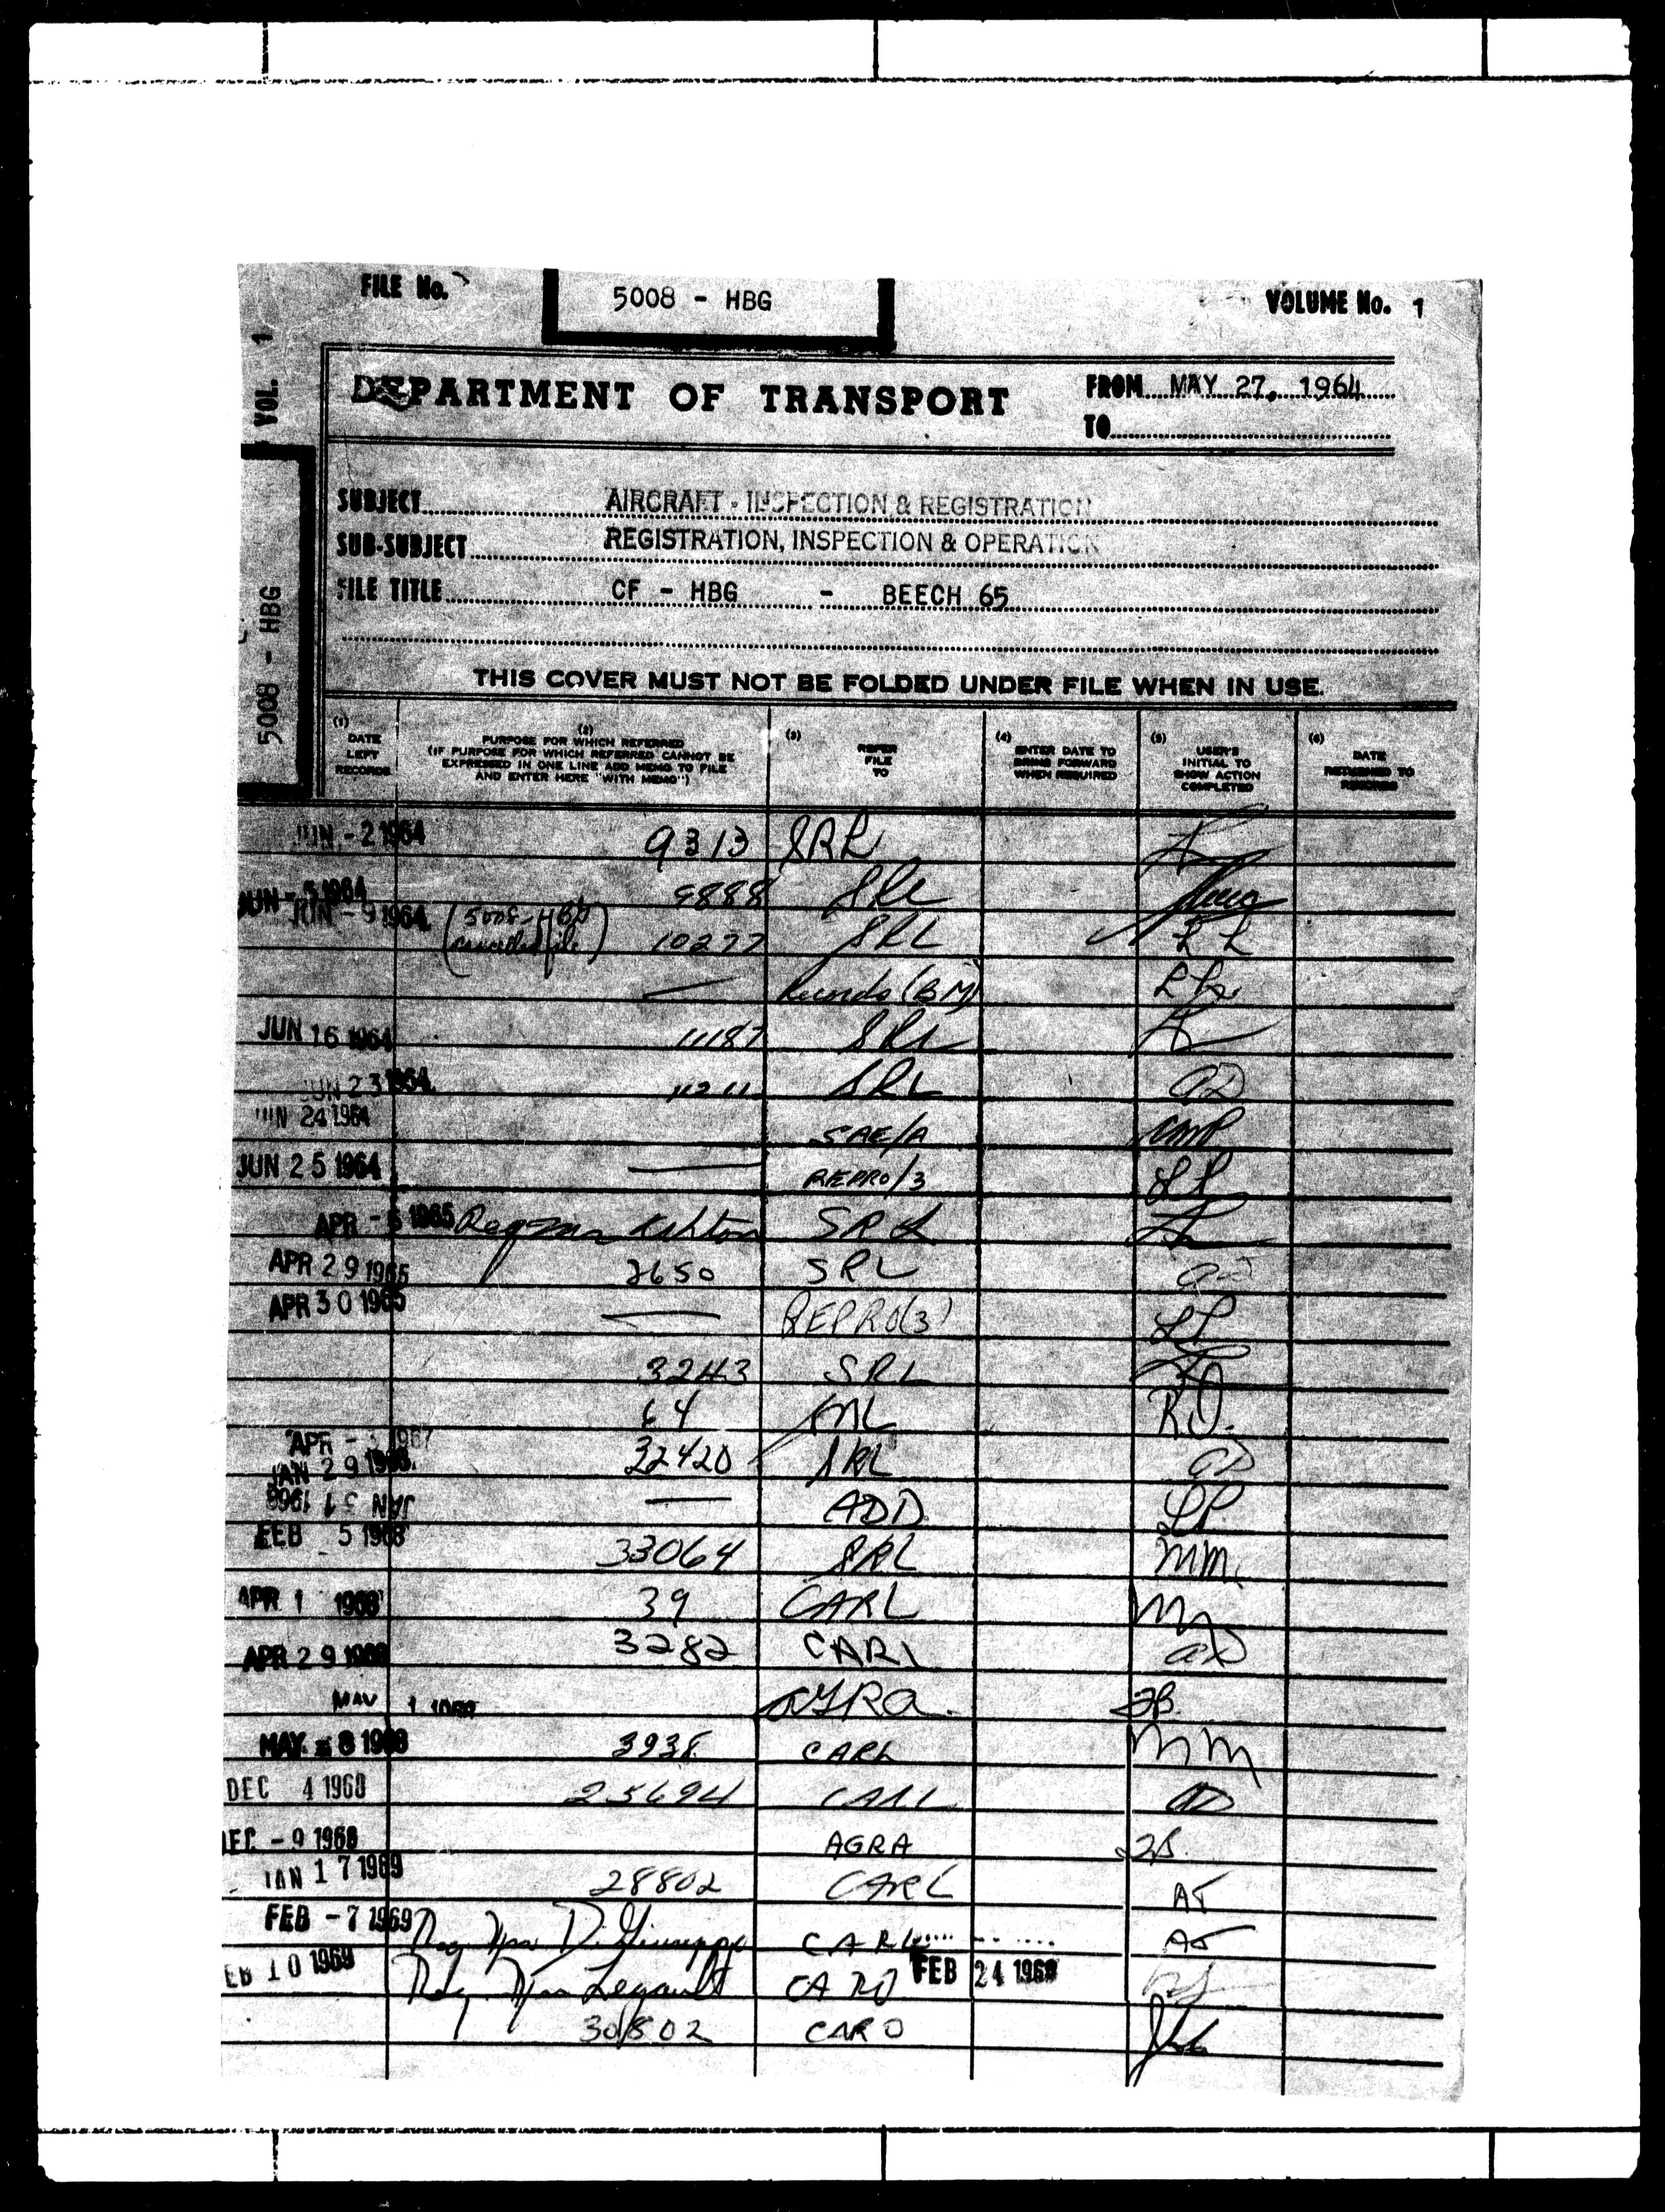 FILE No.
5008 - HBG
VOLUME No. 1
VOL. 1
5008 - HBG
DEPARTMENT OF TRANSPORT
FROM MAY 27, 1964
TO
SUBJECT AIRCRAFT - INSPECTION & REGISTRATION
SUB-SUBJECT REGISTRATION, INSPECTION & OPERATION
FILE TITLE CF - HBG - BEECH 65
THIS COVER MUST NOT BE FOLDED UNDER FILE WHEN IN USE.
(1) DATE LEFT RECORDS
(2) PURPOSE FOR WHICH REFERRED
(IF PURPOSE FOR WHICH REFERRED CANNOT BE
EXPRESSED IN ONE LINE ADD MEMO TO FILE
AND ENTER HERE "WITH MEMO")
(3) REFER FILE TO
(4) ENTER DATE TO BRING FORWARD WHEN REQUIRED
(5) USER'S INITIAL TO SHOW ACTION COMPLETED
(6) DATE RETURNED TO RECORDS
JUN - 2 1964 9313 SRL
JUN - 5 1964 9888 SRL
JUN - 9 1964 (5008-HBG cancelled file) 10277 SRL LL
Records (BM)
JUN 16 1964 11187 SRL
JUN 23 1964 SRL
JUN 24 1964 SAE/A
JUN 25 1964 — REPRO/3
APR - 1965 SRL
APR 29 1965 2650 SRL
APR 30 1965 — REPRO(3) LP
3243 SRL
64 R.D.
APR - 1967
JAN 29 1968 32420 SRL
JAN 31 1968 — ADD LP
FEB 5 1968 33064 SRL MM
APR 1 1968 39 CARL
APR 29 1968 3282 CARL
MAY 1 1968
MAY - 8 1968 3938 CARL MM
DEC 4 1968 25694 CARL
DEC - 9 1968 AGRA
JAN 17 1969 28802 CARL AJ
FEB - 7 1969 Req Mrs Di Giuseppe CARL AJ
FEB 10 1969 Req. Mrs Legault CARO FEB 24 1969
30802 CARO